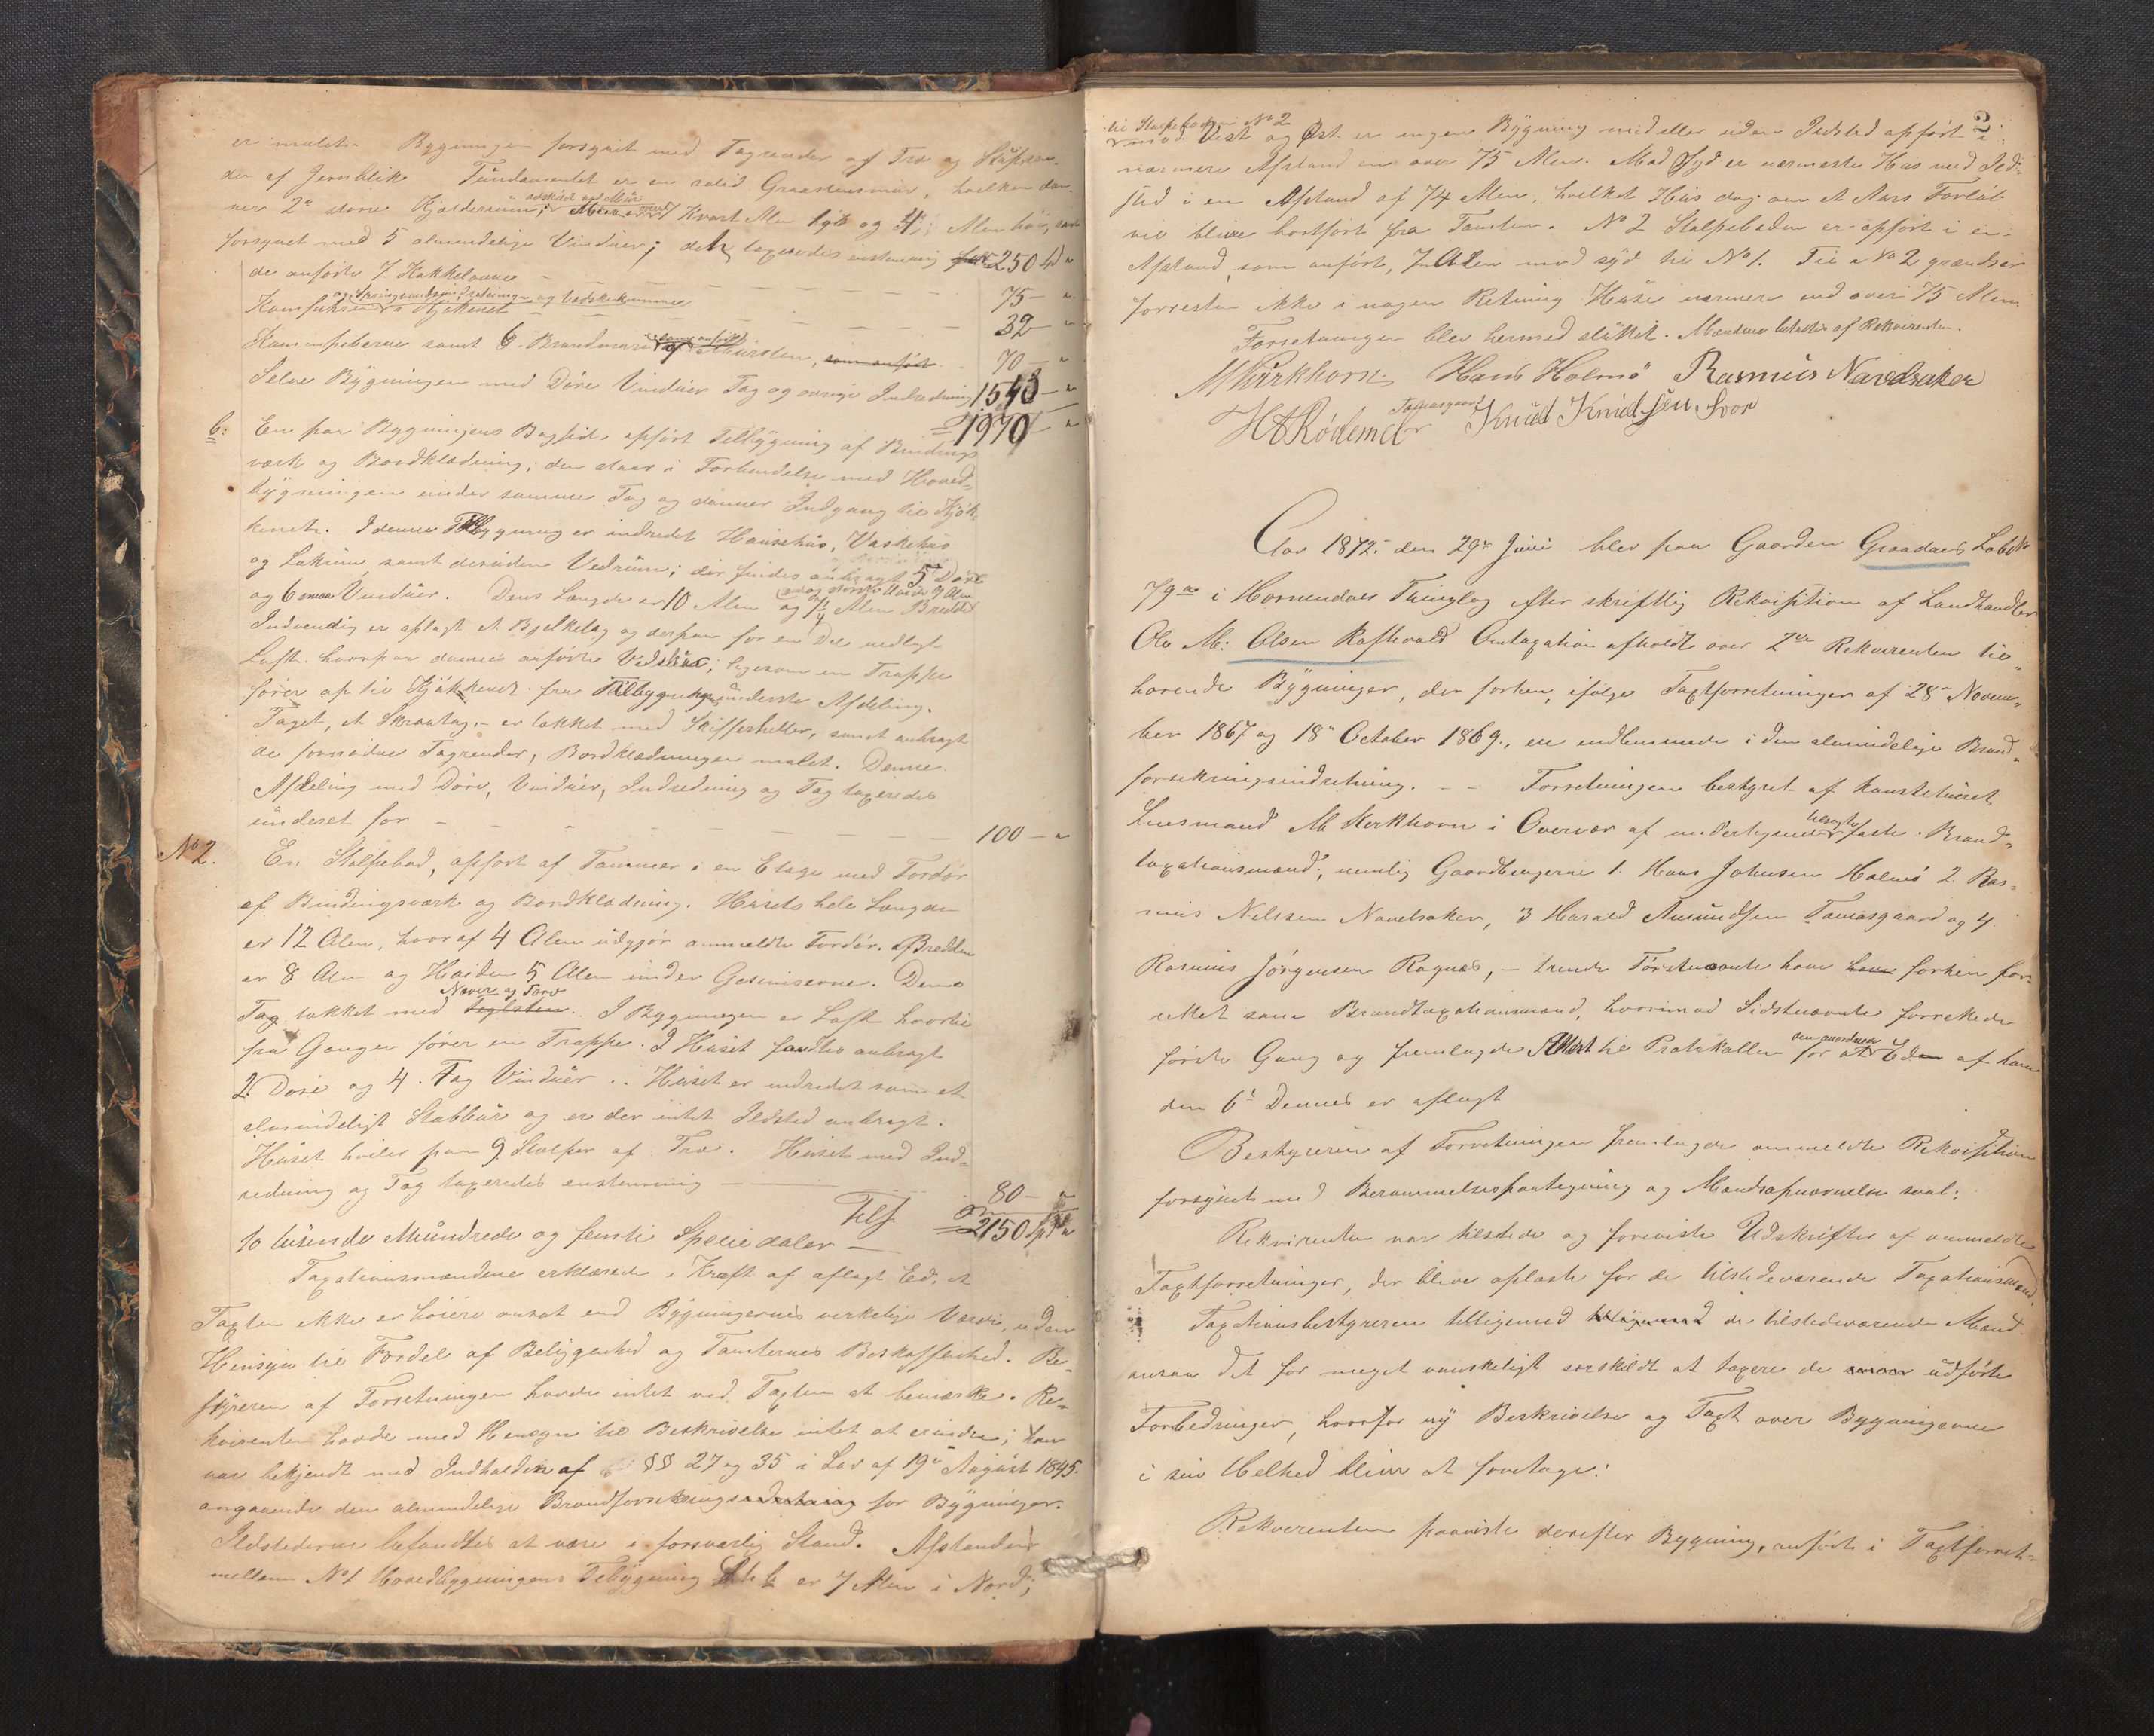 er malet. Bygningen forsynet med Tagrender af Træ og
den af Jernblik Fundamentet er en solid Graasteensmuur, hvilken dan-
ner 2de store Kjælderrum; adskilt ved Muur Kvart Alen tyk og Alen høi, samt
forsynet med 5 almindelige Vinduer; det taxeredes enstemmig 250 Spd
de anførte 7 Kakkelovne 75 "
Komfuren i Kjøkkenet og Vaskekumme 32 "
samt 6 Brandmure af Muursten, som anført 70 "
Selve Bygningen med Døre Vinduer Tag og øvrige Indredning 1543 "
1970 "
b: En paa Bygningens Bagside opført Tilbygning af Bindings-
værk og Bordklædning; den staar i Forbindelse med Hoved-
bygningen under samme Tag og danner Indgang til Kjøk-
kenet. I denne Tilbygning er indredet Hønsehus, Vaskehus
og Lokum samt desuden Vedrum; der findes anbragt 5 Døre
og 6 smaa Vinduer. Dens Længde er 10 Alen og 7¼ Alen Bredde
Indvendig er oplagt et Bjelkelag og derpaa for en Del nedlagt
Loft hvorpaa dannes anførte Vedskur; ligesom en Trappe
fører op til Kjøkkenet fra Tilbygningens underste Afdeling.
Taget, et Skraatag, er tækket med Skifferheller, samt anbragt
de fornødne Tagrender, Bordklædningen malet. Denne
Afdeling med Døre, Vinduer, Indredning og Tag taxeredes
underet for 100 "
No 2. En Stolpebod, opført af Tømmer i en Etage med Fordør
af Bindingsværk og Bordklædning. Husets hele Længde
er 12 Alen, hvoraf 4 Alen udgjør anmeldte Fordør. Bredden
er 8 Alen og Høiden 5 Alen under Gesimserne. Dens
Tag tækket med Næver og Torv. I Bygningen er Loft hvortil
fra Gangen fører en Trappe. I Huset fandtes anbragt
2 Døre og 4 Fag Vinduer. Huset er indredet som et
almindeligt Stabbur og er der intet Ildsted anbragt.
Huset hviler paa 9 Stolper af Træ. Huset med Ind-
redning og Tag taxeredes enstemmig 80 "
Tils 2150 Spd
to tusinde Et hundrede og femti Speciedaler
Taxationsmændene erklærede i Kraft af aflagt Ed, at
Taxten ikke er høiere ansat end Bygningernes virkelige Værdi, uden
Hensyn til Fordel af Beliggenhed og Tomternes Beskaffenhed. Be-
styreren af Forretningen havde intet ved Taxten at bemærke. Re-
kvirenten havde med Hensyn til Beskrivelse intet at erindre; han
var bekjendt med Indholden af §§ 27 og 35 i Lov af 19de August 1845
angaaende den almindelige Brandforsikringsindretning for Bygninger.
Ildstederne befandtes at være i forsvarlig Stand. Afstanden
mellem No 1 Hovedbygningens Tilbygning Litr b er 7 Alen i Nord;
2
til Stolpeboden No 2
mod Vest og Øst er ingen Bygning med eller uden Ildsted opført i
nærmere Afstand en over 75 Alen. Mod Syd er nærmeste Hus med Ild-
sted i en Afstand af 74 Alen, hvilket Hus dog om et Aars Forløb
vil blive bortført fra Tomten. No 2 Stolpeboden er opført i en
Afstand, som anført, 7 Alen mod syd til No 1. Til No 2 grændser
forresten ikke i nogen Retning Huse nærmere end over 75 Alen.
Forretningen blev hermed sluttet. Mændene betaltes af Rekvirenten.
M Kirkhorn Hans Holmø Rasmus Navelsaker
H A Rødseth Tomasgaard Knud Knudsen Svor
Aar 1872 den 29de Juni blev paa Gaarden Graadaes Løbe No
79 a i Hornindals Thinglag efter skriftlig Rekvisition af Landhandler
Ole M: Olsen Raftevold Omtaxation afholdt over 2de Rekvirenten til-
hørende Bygninger, der forhen, ifølge Taxtforretninger af 28de Novem-
ber 1867 og 18de October 1869, ere indlemmede i den almindelige Brand-
forsikringsindretning. — Forretningen bestyret af konstitueret
Lensmand M Kirkhorn i Overvær af undertegnede faste Brand-
taxationsmænd; nemlig Gaardbrugerne 1. Hans Johnsen Holmø 2. Ras-
mus Nelssen Navelsaker, 3 Harald Amundsen Tomasgaard og 4
Rasmus Jørgensen Ragnes, — trende Førstnævnte have forhen for-
rettet som Brandtaxationsmænd, hvorimod Sidstnævnte forrettede
første Gang og fremlagde Attest til Protokollen for at den anordnede Ed af ham
den 6te Dennes er aflagt
Bestyreren af Forretningen fremlagde anmeldte Rekvisition
forsynet med Berammelsespaategning og Mandsopnævnelse saal:
Rekvirenten var tilstede og foreviste Udskrifter af anmeldte
Taxtforretninger, der bleve oplæste for de tilstedeværende Taxationsmænd.
Taxationsbestyreren tilligemed de tilstedeværende Mænd
ansaa det for meget vanskeligt særskildt at taxere de udførte
Forbedringer, hvorfor ny Beskrivelse og Taxt over Bygningerne
i sin Helhed bliver at foretage:
Rekvirenten paaviste derefter Bygning, anført i Taxtforret-